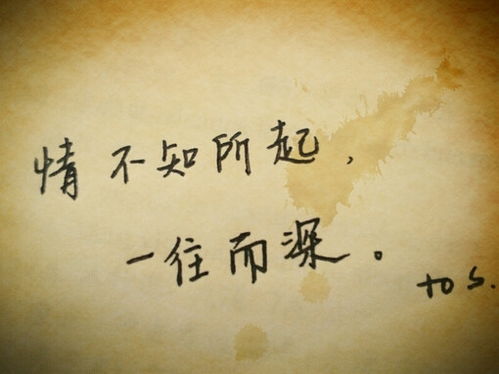 情不知所起，
一往而深。
to S.